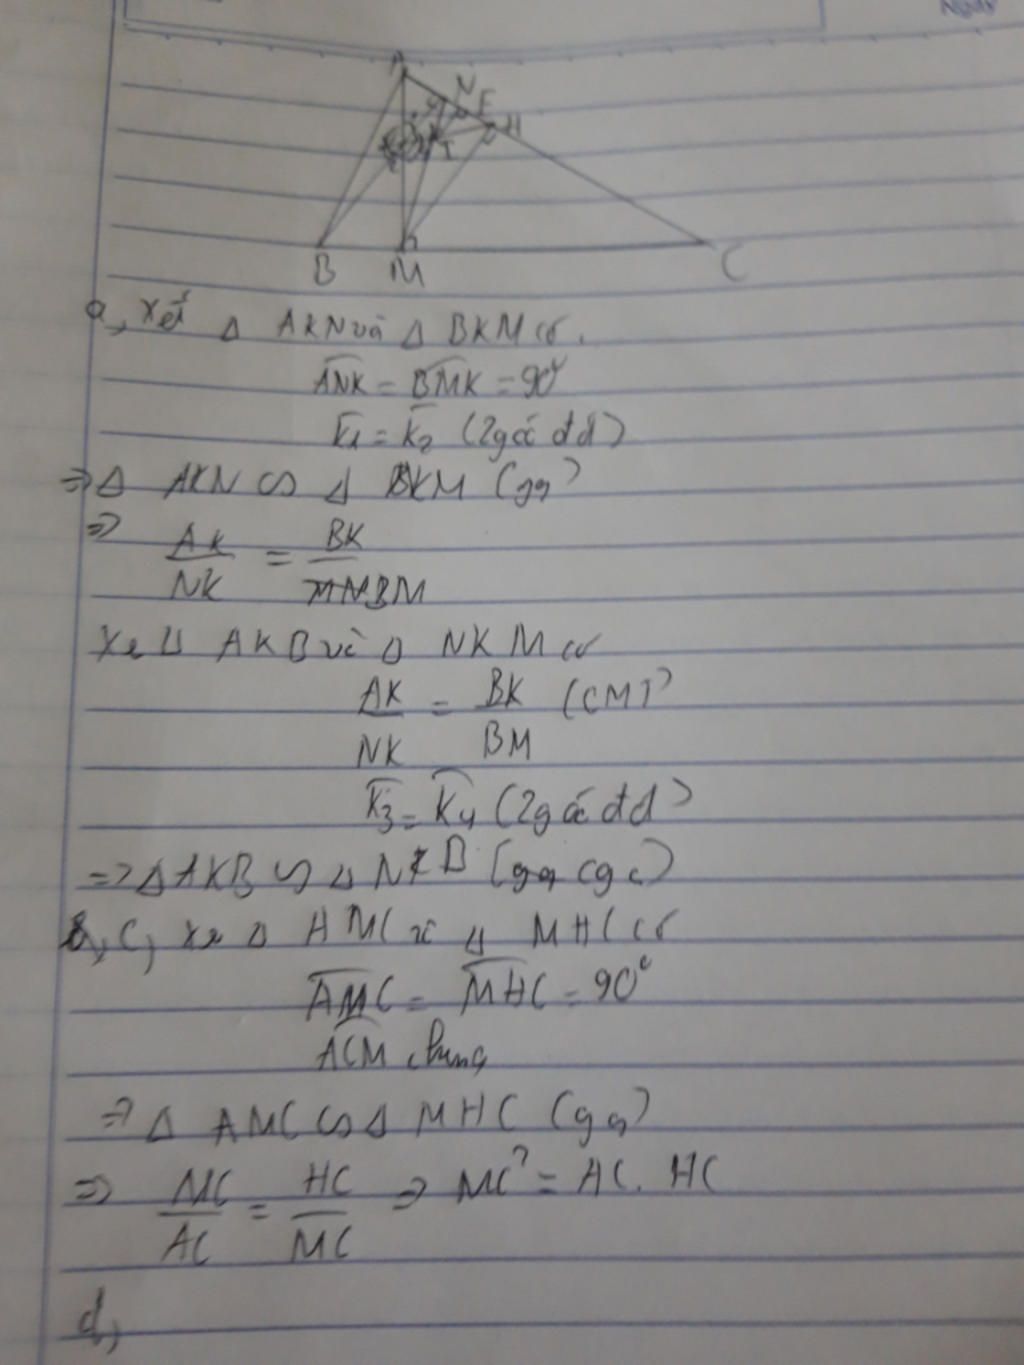 A
N
E
H
K
I
B M C
a, xét Δ AKN và Δ BKM có.
ANK = BMK = 90°
K1 = K2 (2góc đđ)
=> Δ AKN ∽ Δ BKM (gg)
=> AK/NK = BK/BM
Xe Δ AKB và Δ NKM có
AK/NK = BK/BM (CMT)
K3 = K4 (2góc đđ)
=> Δ AKB ∽ Δ NKB (cgc)
C, xe Δ AMC và Δ MHC có
AMC = MHC = 90°
ACM chung
=> Δ AMC ∽ Δ MHC (gg)
=> MC/AC = HC/MC => MC² = AC. HC
d,